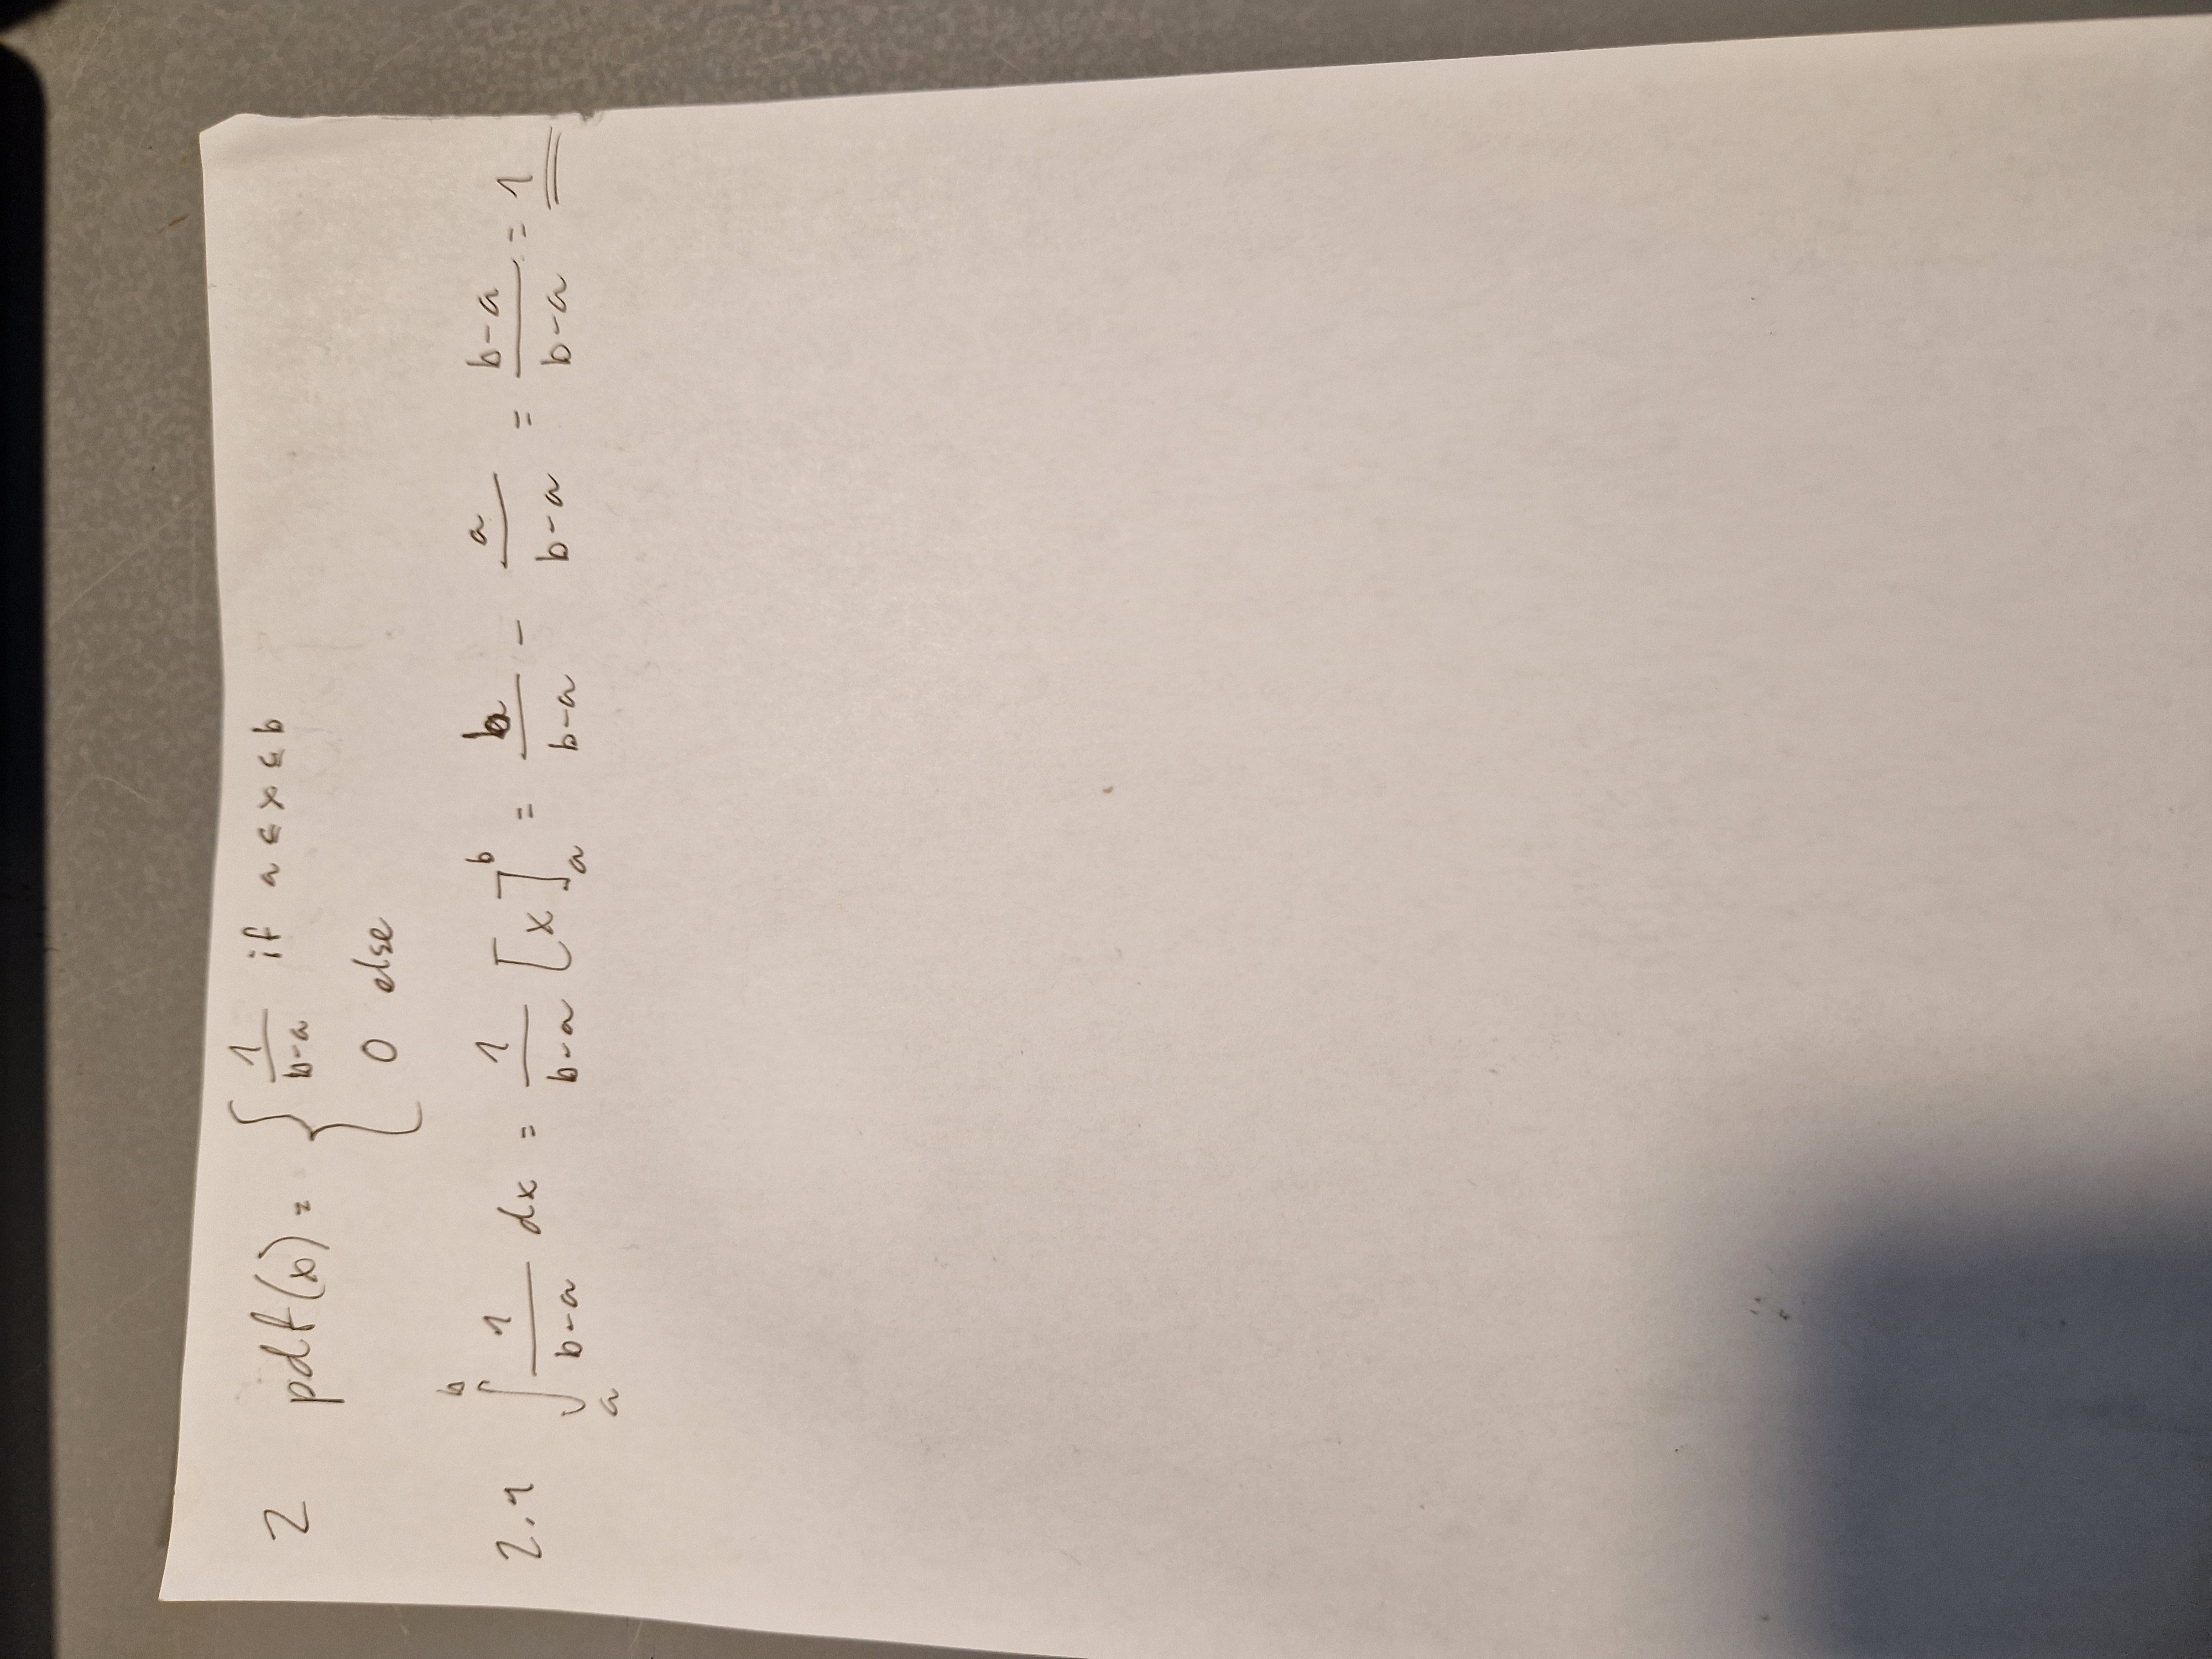 2 pdf(x) = { 1/(b-a) if a ≤ x ≤ b
0 else
2.1 ∫_a^b 1/(b-a) dx = 1/(b-a) [x]_a^b = b/(b-a) - a/(b-a) = (b-a)/(b-a) = 1